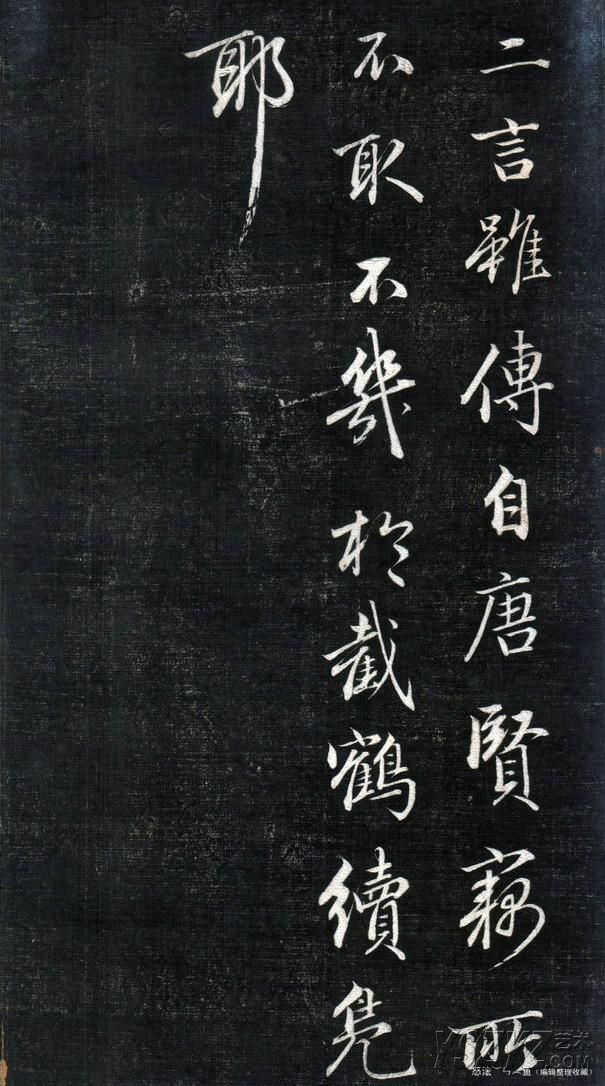 二言雖傳自唐賢竊所
不取不幾於截鶴續鳧
耶
艺术
（编辑整理收藏）